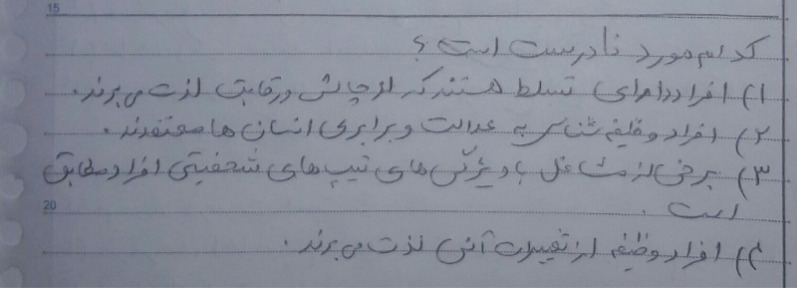 15
کدام مورد نادرست است؟
۱) افراد دارای تسلط هستند که از چالش و رقابت لذت می برند.
۲) افراد وظیفه شناس به عدالت و برابری انسان ها معتقدند.
۳) برخی از مشاغل با ویژگی های تیپ های شخصیتی افراد مطابق
است.
20
۴) افراد وظیفه از تغییرات آنی لذت می برند.